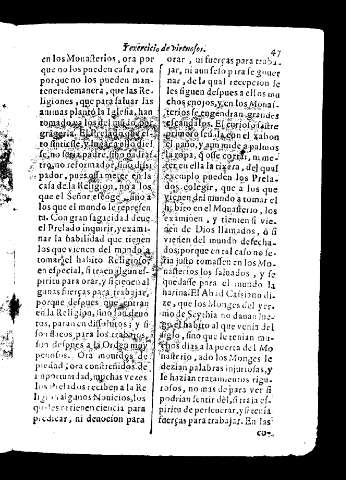 Y exercicio de Virtuosos. 47
en los Monasterios, ora por
que no los pueden casar, ora
porque no los pueden man-
tener demanera, que las Re-
ligiones, que para saluar las
animas plantò la Iglesia, han
tomado ya los del mũdo por
grageria. El Prelado que es-
to sintiesse, y lugar a ello dies-
se, no sera padre, sino padras-
tro, no reformador, sino dissi-
pador, pues assi meter en la
casa de la Religion, no a los
que el Señor escoge, sino a
los que el mundo le represen-
ta. Con gran sagacidad deue
el Prelado inquirir, y exami-
nar la habilidad que tienen
los que vienen del mundo a
tomar el habito Religioso,
en especial, si traen algun es-
piritu para orar, y si tienen al
gunas fuerças para trabajar,
porque despues que entran
en la Religion, sino son deuo
tos, paran en dissolutos; y si
son floxos para los trabajos,
son despues a la Orden muy
penosos. Ora mouidos de
piedad, ora constreñidos de
importunidad, muchas vezes
los Prelados reciben a la Re
ligion algunos Nouicios, los
quales ni tienen ciencia para
predicar, ni deuocion para
orar, ni fuerças para traba-
jar, ni aun seso para se gouer
nar, de la qual recepcion se
les siguen despues a ellos mu
chos enojos, y en los Monas-
terios se engendran grandes
escandalos. El curioso sastre
primero señala con el xabon
el paño, y aun mide a palmos
la ropa, q̃ ose cortar, ni me-
ter en ella la tixera, del qual
exemplo pueden los Prela-
dos colegir, que a los que
vienen del mundo a tomar el
habito en el Monasterio, los
examinen, y tienten si vie-
nen de Dios llamados, ò si
vienen del mundo desecha-
dos; porque en tal caso no se
ria justo tomassen en los Mo-
nasterios los saluados, y se
quedasse para el mundo la
harina. El Abad Casiano di-
ze, que los Monges del yer-
mo de Scythia no dauan lue-
go el habito al que venia del
siglo, sino que le tenian mu-
chos dias a la puerta del Mo
nasterio, ado los Monges le
dezian palabras injuriosas, y
le hazian tratamientos rigu-
rosos, no mas de para ver si
podrian sentir dèl, si traia es-
piritu de perseuerar, y si tenia
fuerças para trabajar. En las
co-